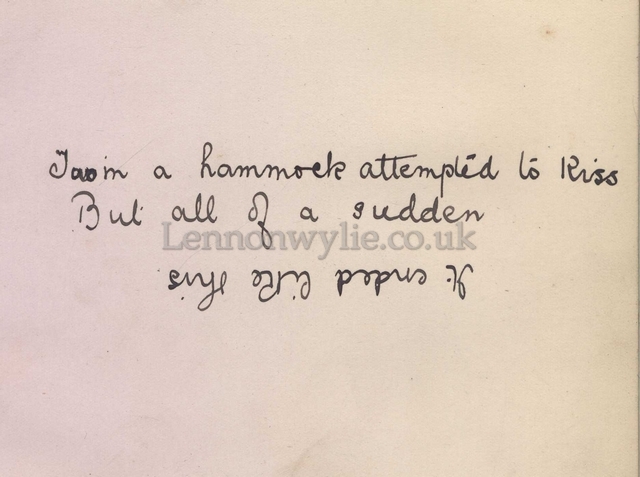 Two in a hammock attempted to Kiss
But all of a sudden
Lennonwylie.co.uk
It ended like this